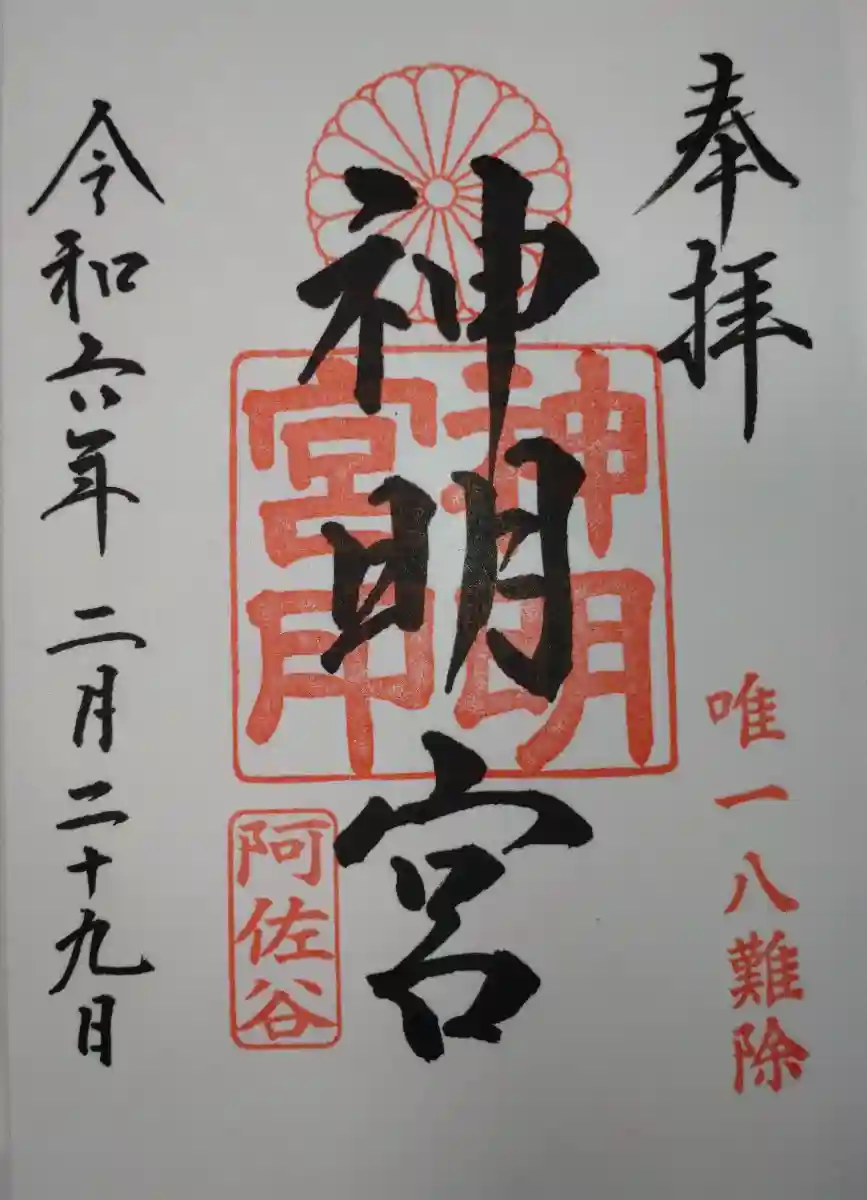 奉拝
唯一八難除
神明宮
神明
宮印
阿佐谷
令和六年 二月二十九日